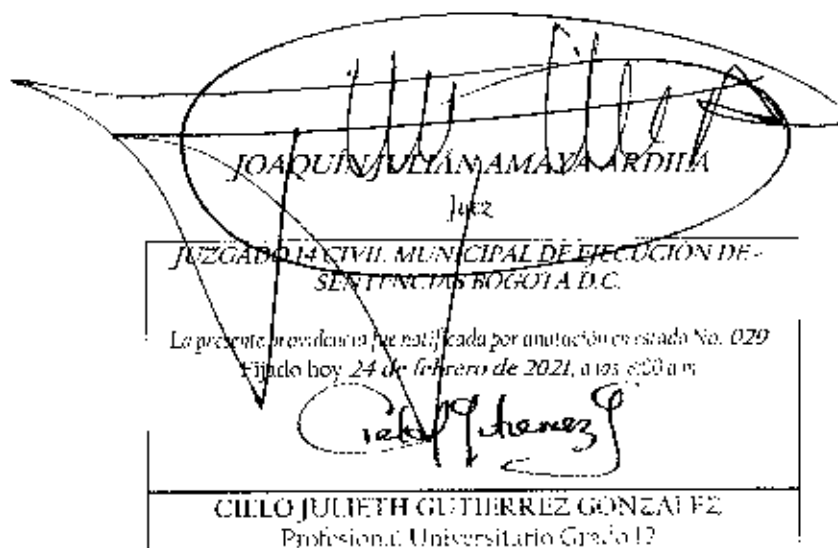 JOAQUÍN JULIÁN AMAYA ARDILA
Juez
JUZGADO 14 CIVIL MUNICIPAL DE EJECUCIÓN DE
SENTENCIAS BOGOTA D.C.
La presente providencia fue notificada por anotación en estado No. 029
Fijado hoy 24 de febrero de 2021, a las 8:00 a m
Cielo J Gutierrez G
CIELO JULIETH GUTIERREZ GONZALEZ
Profesional Universitario Grado 12